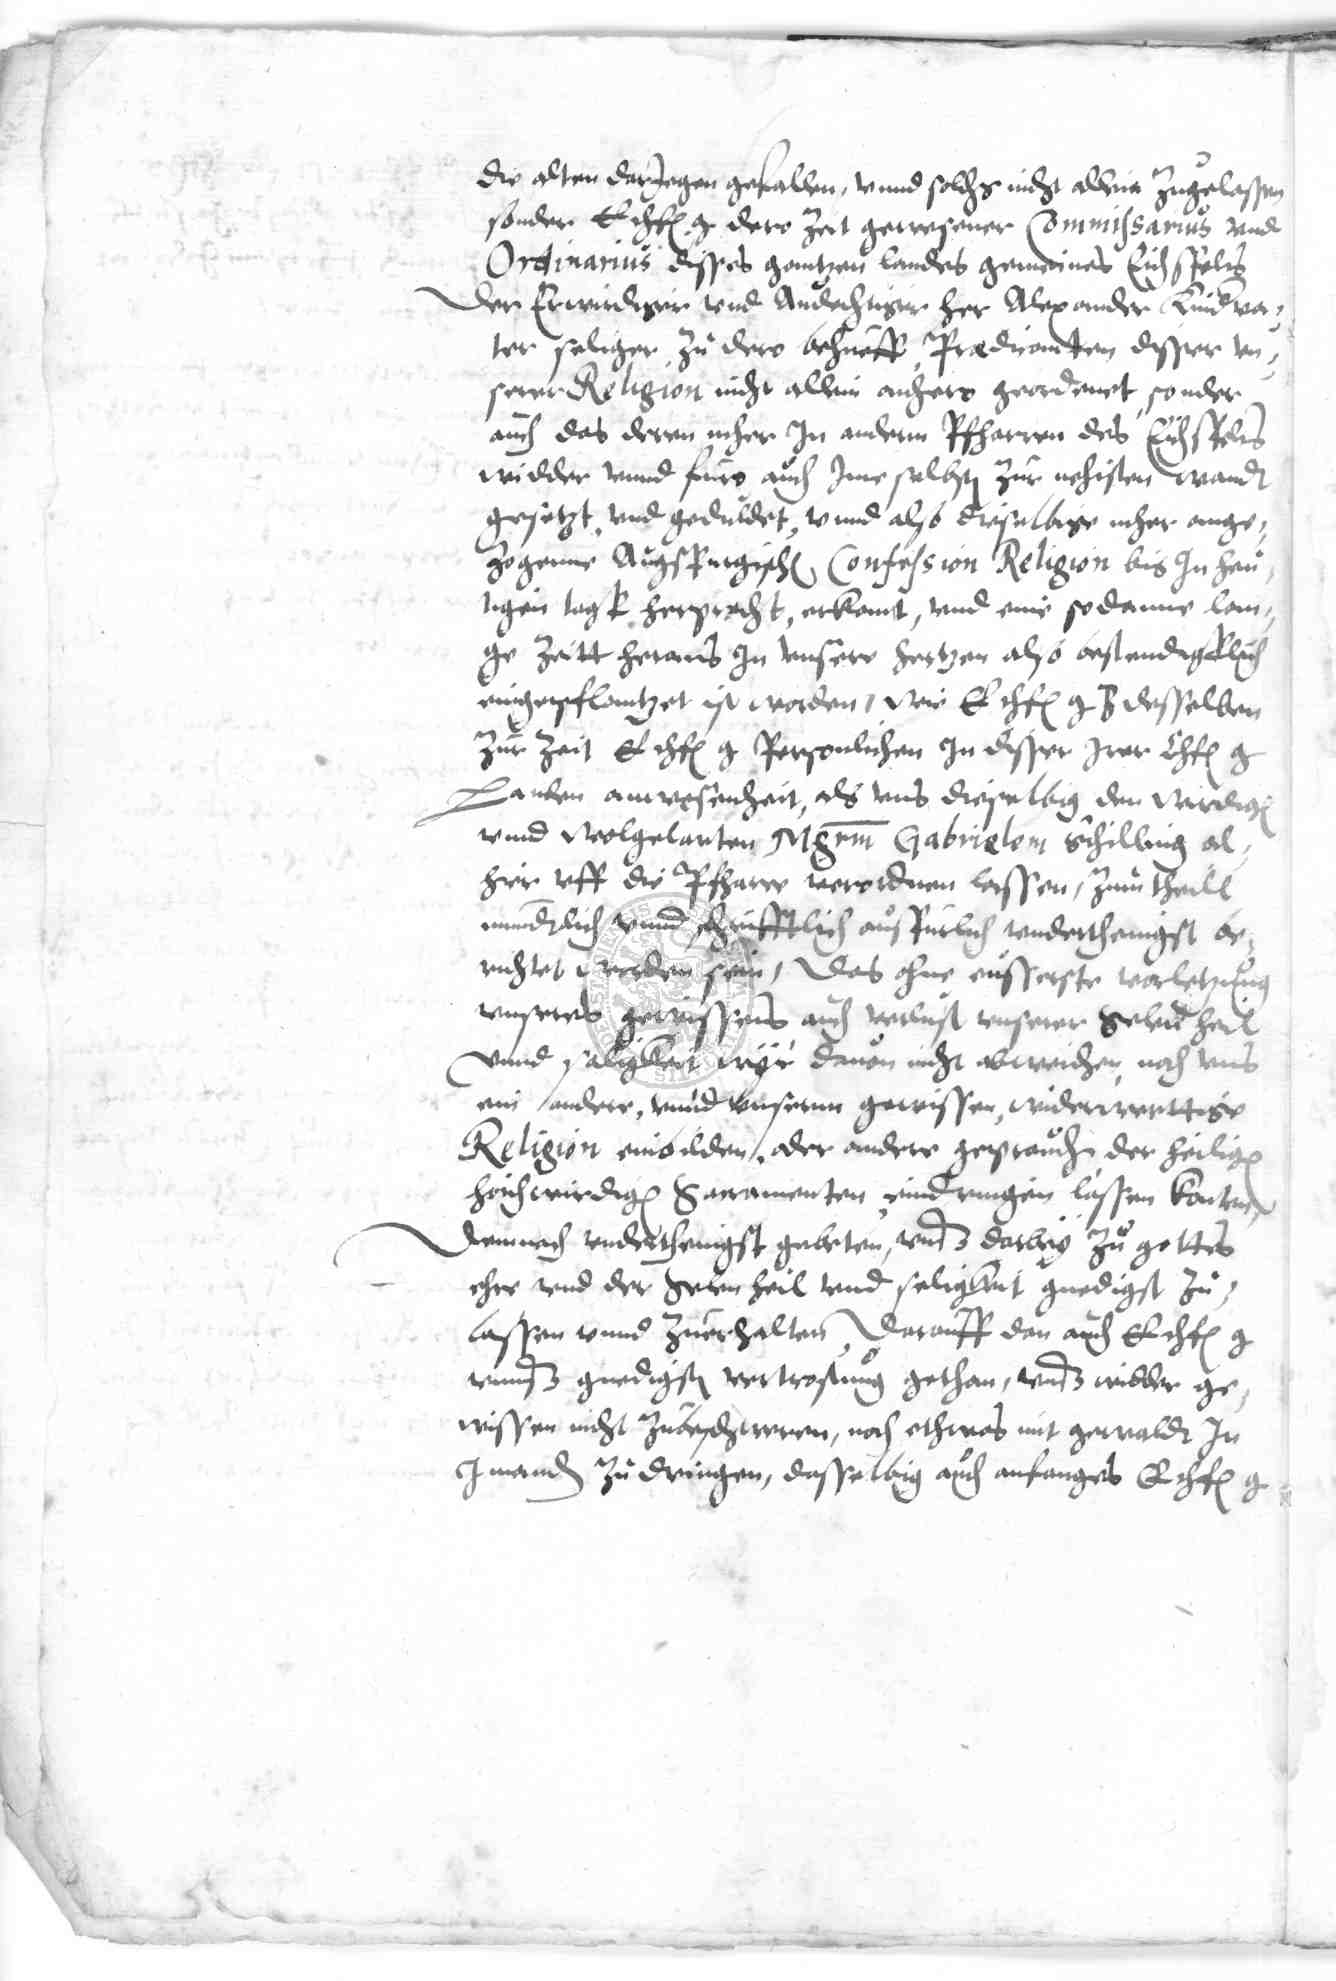 die alten darJegen gehalten, vnnd solchs nicht allein Zugelassen
sonder E chf g dero Zeit gewesener Commissarius vnd
Ordinarius disses gantzen landes gemeines Eichsfelts
Der Erwirdiger vnd Andechtiger her Alexander Kindva-
ter seliger Zu dero behueff Prædicanten disser vn-
serer Religion nicht allein anhero geordenet, sonder
auch das deren mher In andern Pfharren des Eichsfelts
widder vnnd fuero auch Jme selbst Zur nehisten wandt
gesetzt, vnd geduldet, vnnd also dieselbige mher ange-
zogenne Augspurgische Confession Religion bis In heu-
tigen tagk herpracht, erkant, vnd eine sodanne lan-
ge Zeitt heraus In vnsere hertzen also bestendigklich
eingepflantzet ist worden, Wie E chf g desselben
Zur Zeit E chf g Personlichen In disser Irer Chf g
Landen anwesenheit, als vns dieselbig den Wirdigen
vnnd Wolgelarten Mgrm Gabrielem Schilling al-
hier vff die Pfharre verordnen lassen, Zum theill
mundtlich vnnd schrifftlich ausfurlich vnderthenigst be-
richtet worden sein, Das ohne eusserste vorletzung
vnseres gewissens auch verlust vnserer Selen heil
vnnd seligkeit wyr dauon nicht abweichen, noch vns
ein andere, vnnd vnserm gewissen, widerwerttige
Religion einbilden, oder andere geprauch der heiligen
hochwirdigen Sacramenten eindringen lassen konten,
Demnach vnderthenigst gebeten, vns darbey Zu gottes
ehre vnd der Selen heil vnd seligkeit gnedigst Zu-
lassen vnnd Zuerhalten, Darauff dan auch E chf g
vnns gnedigst vertrostung gethan, vns widder ge-
wissen nicht Zubeschweren, noch ethwas mit gewaldt In
Jmandts Zu dringen, dasselbig auch anfanges E chf g